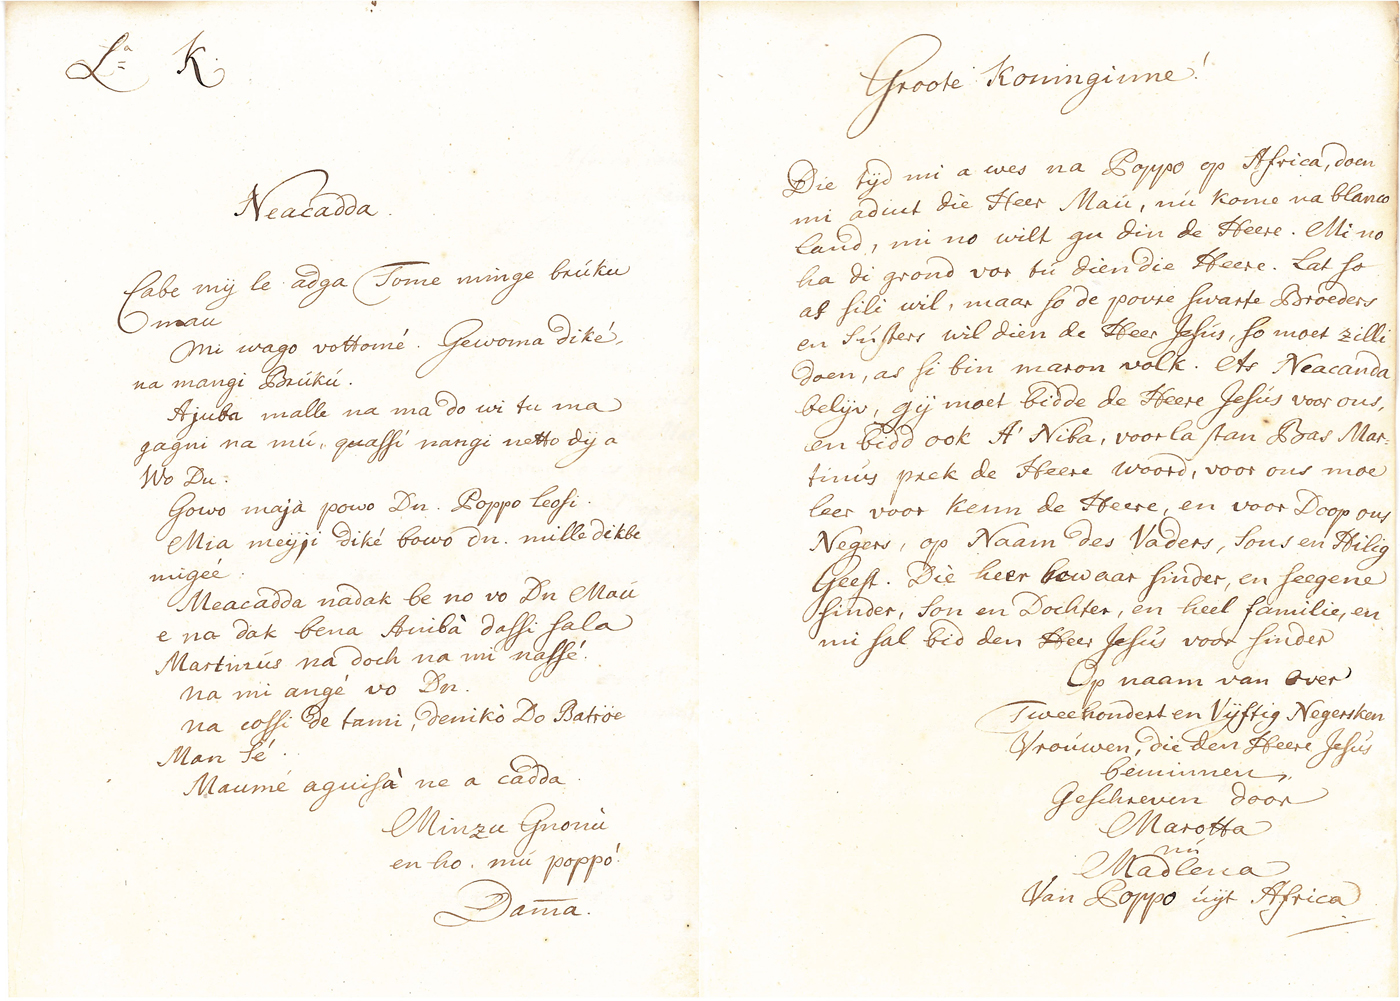 L.a K.
Neacadda.
Cabe mij le adga Tome minge brúku
mau
Mi wago vottomé. Gewoma diké,
na mangi Brúkú.
Ajuba malle na ma do wi tu ma
gagni na mú, quassi nangi netto dy a
Wo Du.
Gowo majà powo Dn. Poppo leosi.
Mia meyji diké bowo dn. mille dikbe
migeé.
Meacadda nadak be no vo Dn Maú
e na dak bena Anibà dassi sala
Martinús na doch na mi nassé.
na mi angé vo Dn.
na cossi de tami, denikò Do Batröe
Man Sé.
Maumé aguisà ne a cadda.
Minzu Gnonù
en ho. mú poppó.
Dama.
Groote Koninginne!
Die tyd mi a wes na Poppo op Africa, doen
mi adint die Heer Maú, nú kome na blanco
land, mi no wilt gu din de Heere. Mi no
ha di grond vor tú dien die Heere. Lat so
as sili wil, maar so de povre swarte Broeders
en Súsiters wil dien de Heer Jesús, so moet zilli
doen, as si bin maron volk. As Neacanda
belijv, gij moet bidde de Heere Jesús voor ons,
en bidd ook A' Niba, voor la stan Bas Mar=
tinús prek de Heere woord, voor ons moe
leer voor kenn de Heere, en voor Doop ons
Negers, op Naam des Vaders, Sons en Hilig
Geest. Die heer bewaar sinder, en seegene
sinder, son en Dochter, en heel familie, en
mi sal bid den Heer Jesús voor sinder
Op naam van over
Tweehondert en Vijftig Negersken
Vroúwen, die den Heere Jesús
beminnen,
Geschreven door
Marotta
nú
Madlena
Van Poppo úyt Africa